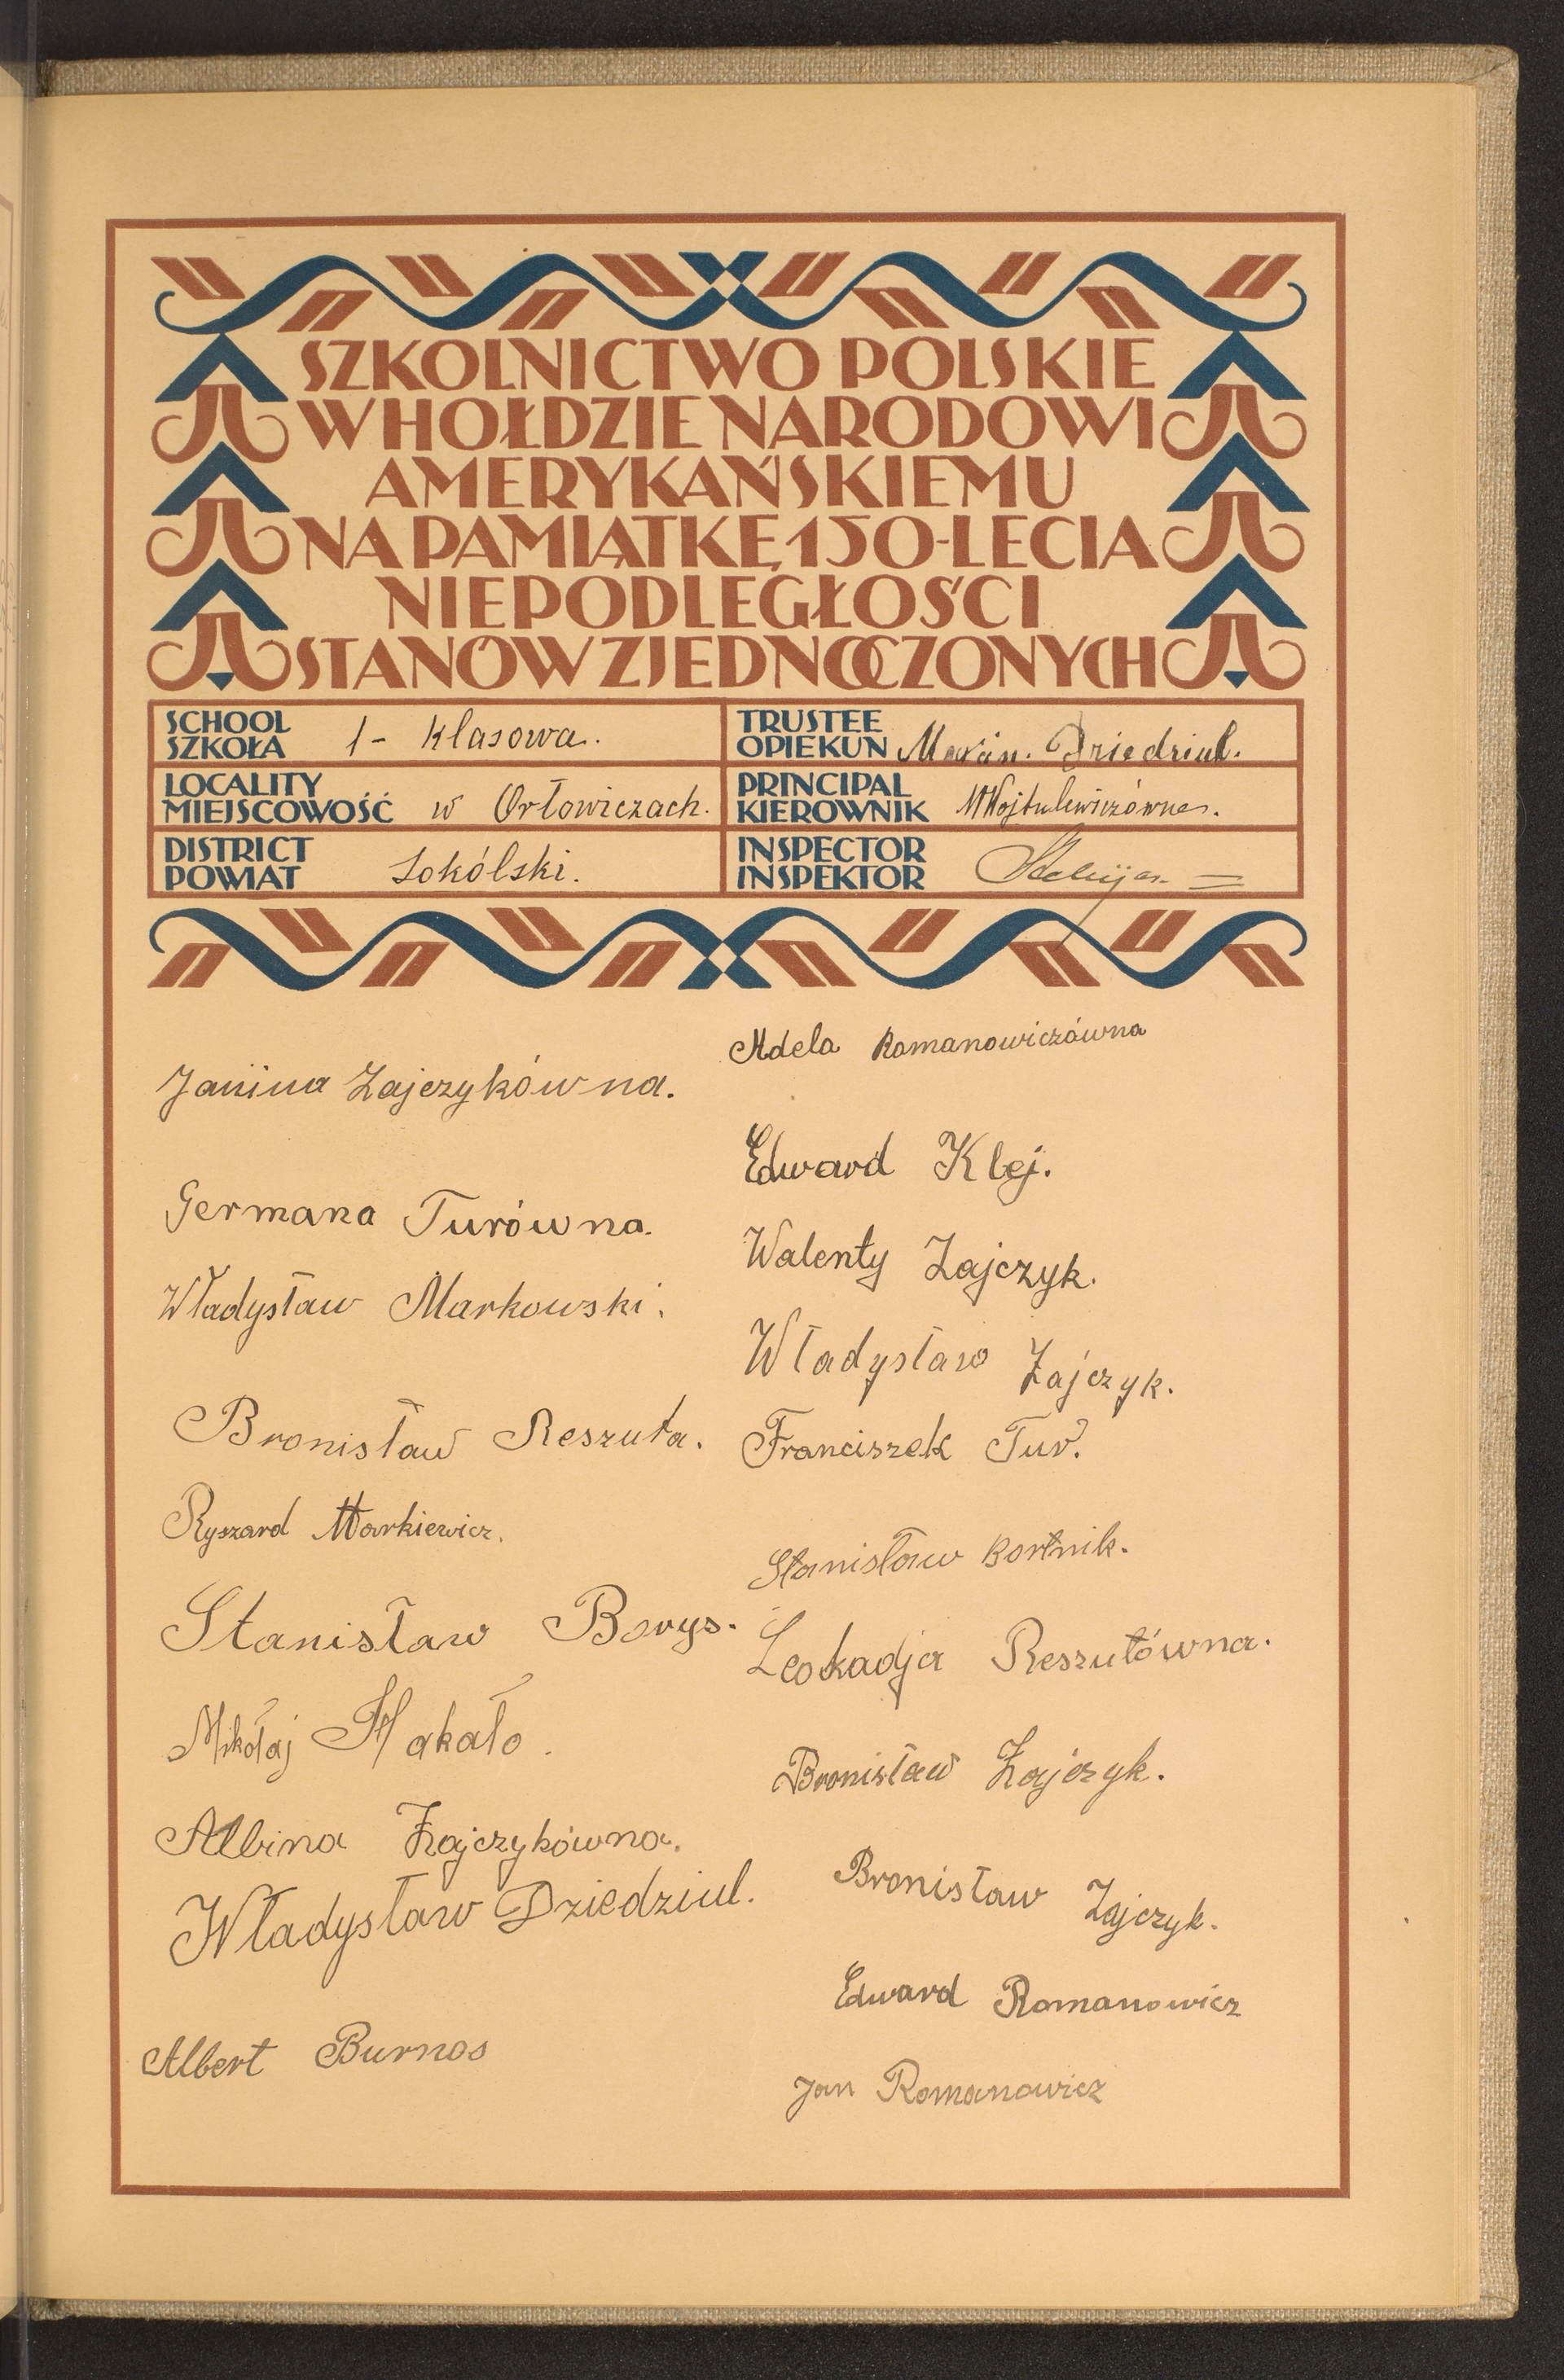 SZKOLNICTWO POLSKIE
W HOŁDZIE NARODOWI
AMERYKAŃSKIEMU
NA PAMIĄTKĘ 150-LECIA
NIEPODLEGŁOŚCI
STANÓW ZJEDNOCZONYCH
SCHOOL
SZKOŁA 1- klasowa.
LOCALITY
MIEJSCOWOŚĆ w Orłowiczach.
DISTRICT
POWIAT Sokólski.
TRUSTEE
OPIEKUN Marcin. Dziedziul.
PRINCIPAL
KIEROWNIK MWojtulewiczówna.
INSPECTOR
INSPEKTOR
Janina Zajczykówna.
Germana Turówna.
Władysław Markowski.
Bronisław Reszuta.
Ryszard Markiewicz.
Stanisław Borys.
Mikołaj Hakało.
Albina Zajczykówna.
Władysław Dziedziul.
Albert Burnos
Adela Romanowiczówna
Edward Klej.
Walenty Zajczyk.
Władysław Zajczyk.
Franciszek Tur.
Stanisław Bortnik.
Leokadja Reszutówna.
Bronisław Zajczyk.
Bronisław Zajczyk.
Edward Romanowicz
Jan Romanowicz